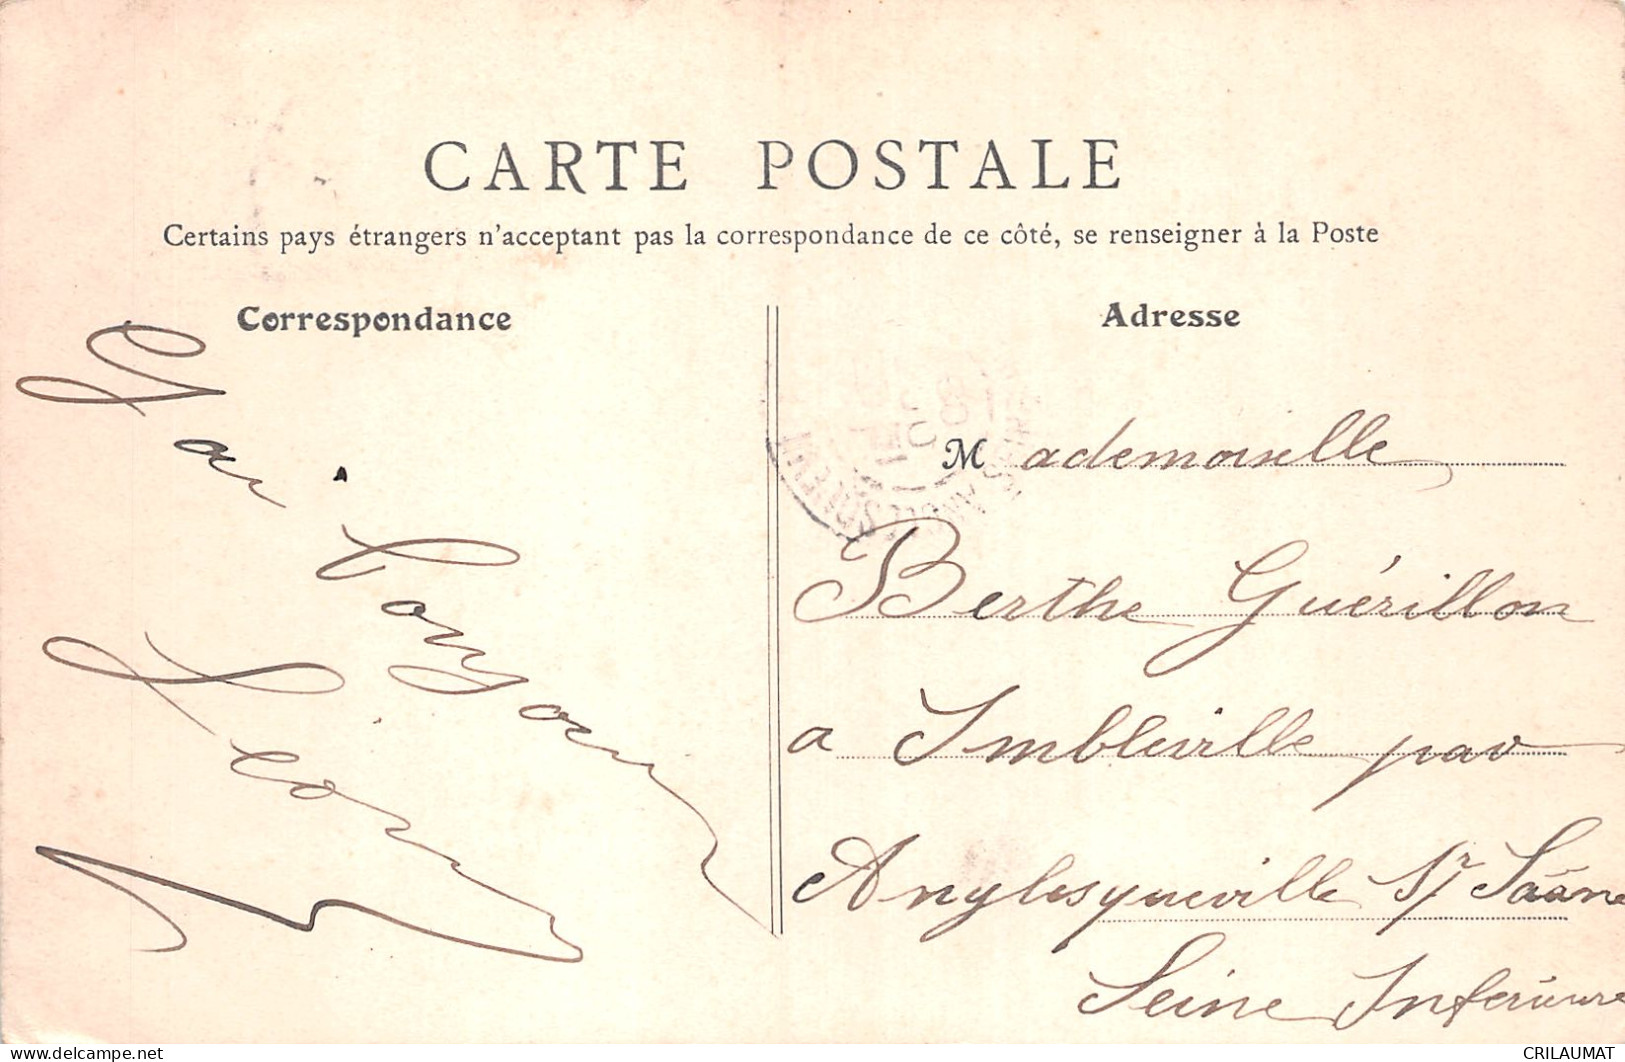 CARTE POSTALE
Certains pays étrangers n'acceptant pas la correspondance de ce côté, se renseigner à la Poste
Correspondance
Adresse
Léon
Mademoiselle
Berthe Guérillon
a Imbleville par
Anglesqueville Sr Saâne
Seine Inférieure
CRILAUMAT